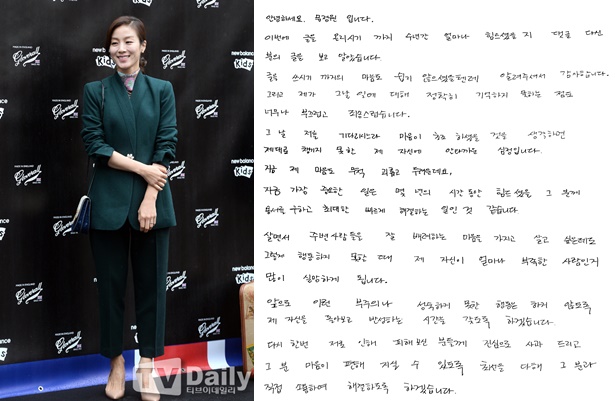 MADE IN ENGLAND
Gloverall
new balance
Kids
TV Daily
티브이데일리
안녕하세요. 문정원 입니다.
이번에 글을 올리시기 까지 수년간 얼마나 힘드셨을 지 댓글 대신
부의 글을 보고 알았습니다.
글을 쓰시기 까지의 마음도 쉽지 않으셨을텐데 알려주셔서 감사합니다.
그리고 제가 그날 일에 대해 정확히 기억하지 못하는 점도
너무나 부끄럽고 죄송스럽습니다.
그 날 저를 기다리시느라 마음이 초조 하셨을 것을 생각하면
제대로 챙기지 못한 제 자신에 안타까운 심정입니다.
지금 제 마음도 무척 괴롭고 두려운데요,
지금 가장 중요한 일은 몇 년의 시간 동안 힘드셨을 그 분께
용서를 구하고 최대한 빠르게 해결하는 일인 것 같습니다
살면서 주변 사람들을 잘 배려하는 마음을 가지고 살고 싶은데요
그렇게 행동하지 못한 데에 제 자신이 얼마나 부족한 사람인지
많이 실망하게 됩니다.
앞으로 이런 부주의나 성숙하지 못한 행동은 하지 않도록
제 자신을 돌아보고 반성하는 시간을 갖도록 하겠습니다.
다시 한번 저로 인해 피해보신 분들께 진심으로 사과 드리고
그 분 마음이 편해 지실 수 있도록 최선을 다해 그 분과
직접 소통하여 해결하도록 하겠습니다.